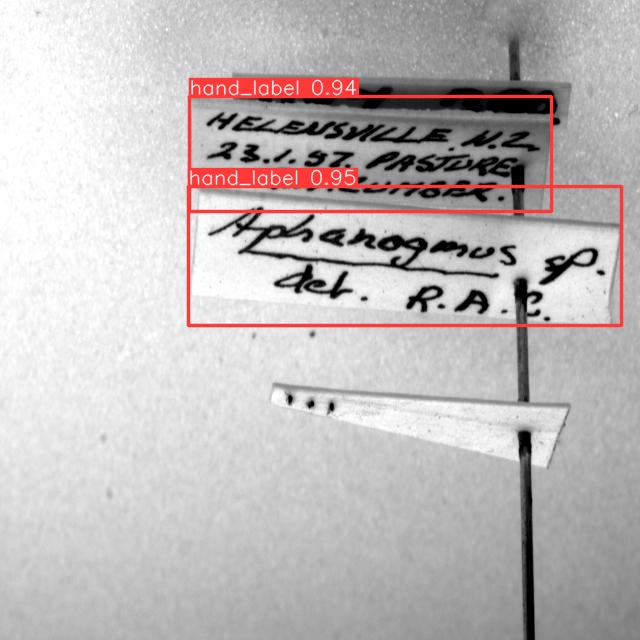 hand_label 0.94
HELENSVILLE. N.Z.
23.1.57. PASTURE
hand_label 0.95
Aphanogmus sp.
det. R.A.C.